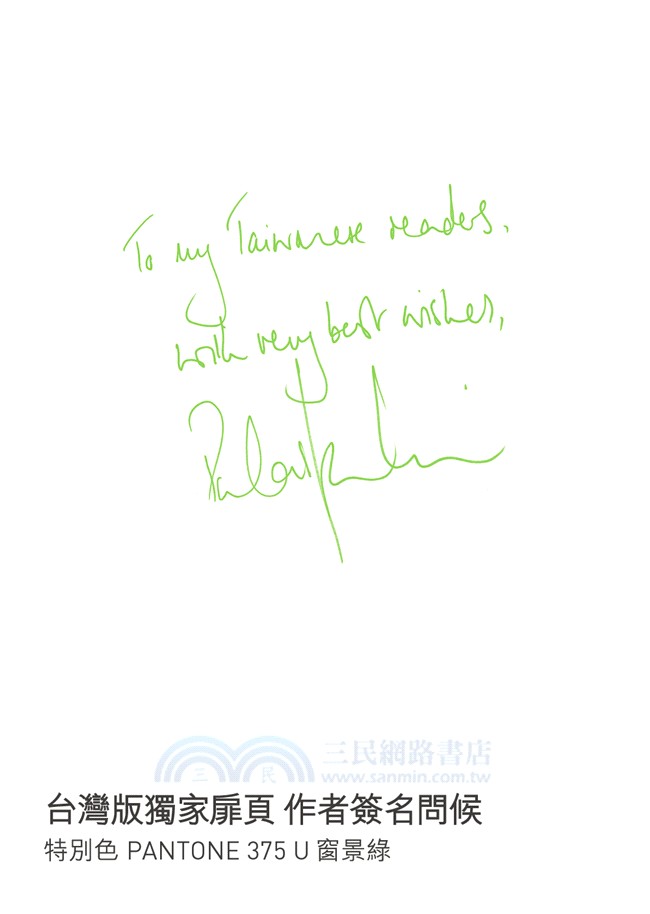 To my Taiwanese readers,
with very best wishes,
三民網路書店
三 民
www.sanmin.com.tw
台灣版獨家扉頁 作者簽名問候
特別色 PANTONE 375 U 窗景綠